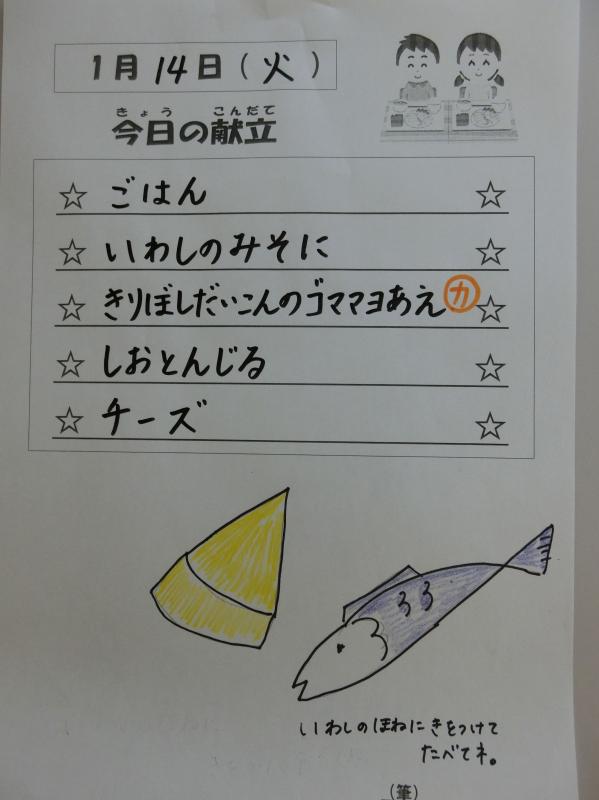 1月14日(火)
きょう こんだて
今日の献立
☆ ごはん ☆
☆ いわしのみそに ☆
☆ きりぼしだいこんのゴママヨあえ カ ☆
☆ しおとんじる ☆
☆ チーズ ☆
いわしのほねにきをつけて
たべてネ。
(筆)